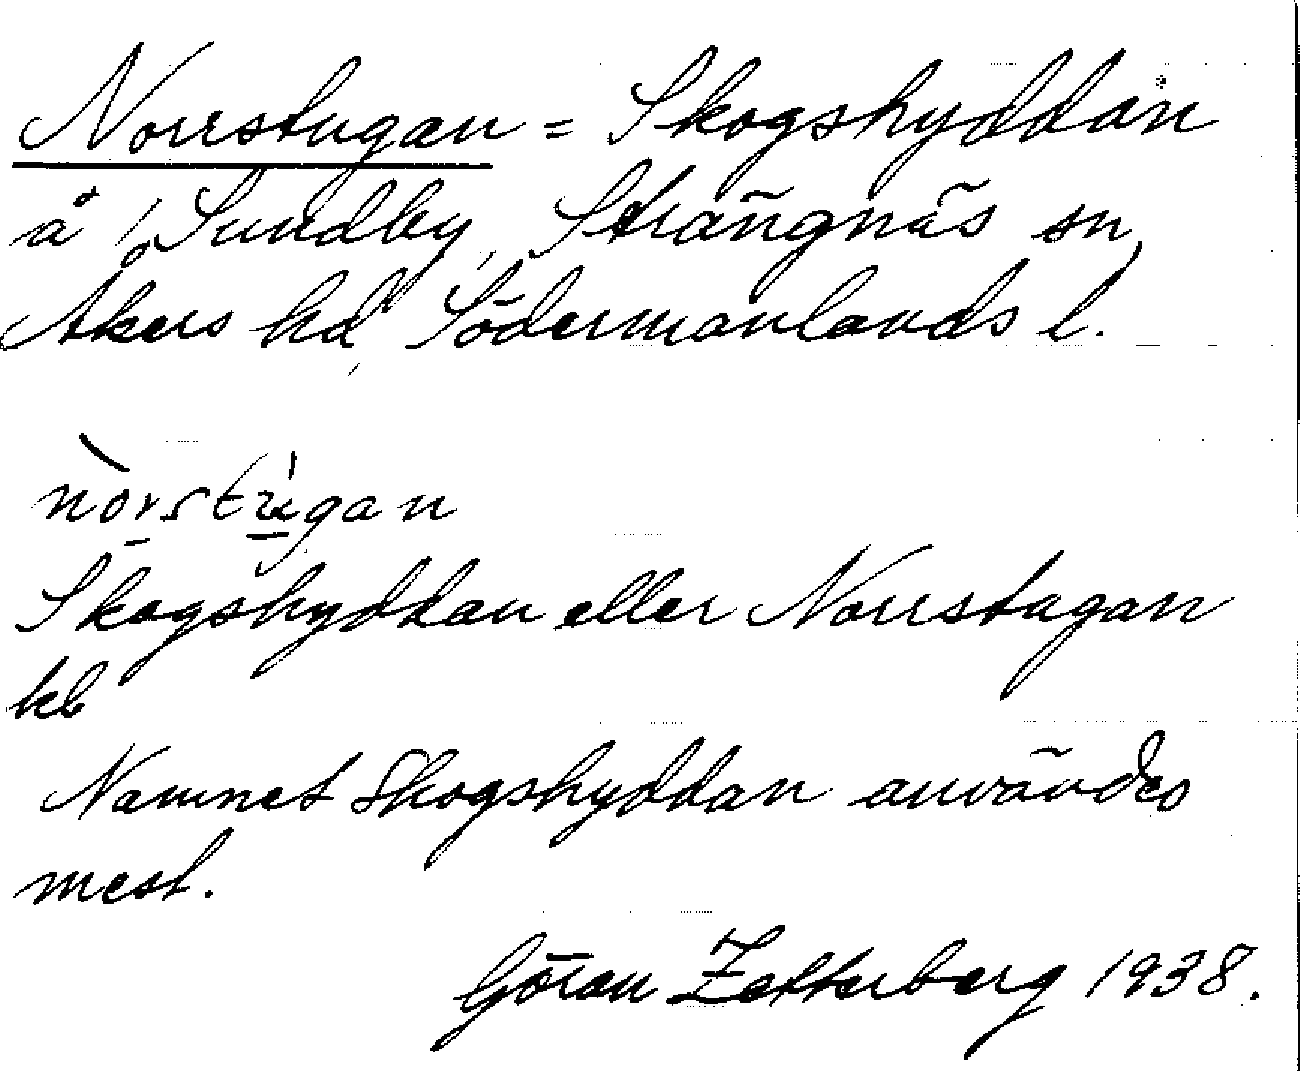 Norrstugan = Skogshyddan
å Sundby, Strängnäs sn,
Åkers hd, Södermanlands l.
nòrstùgan
Skogshyddan eller Norrstugan
kb
Namnet Skogshyddan användes
mest.
Göran Zetterberg 1938.